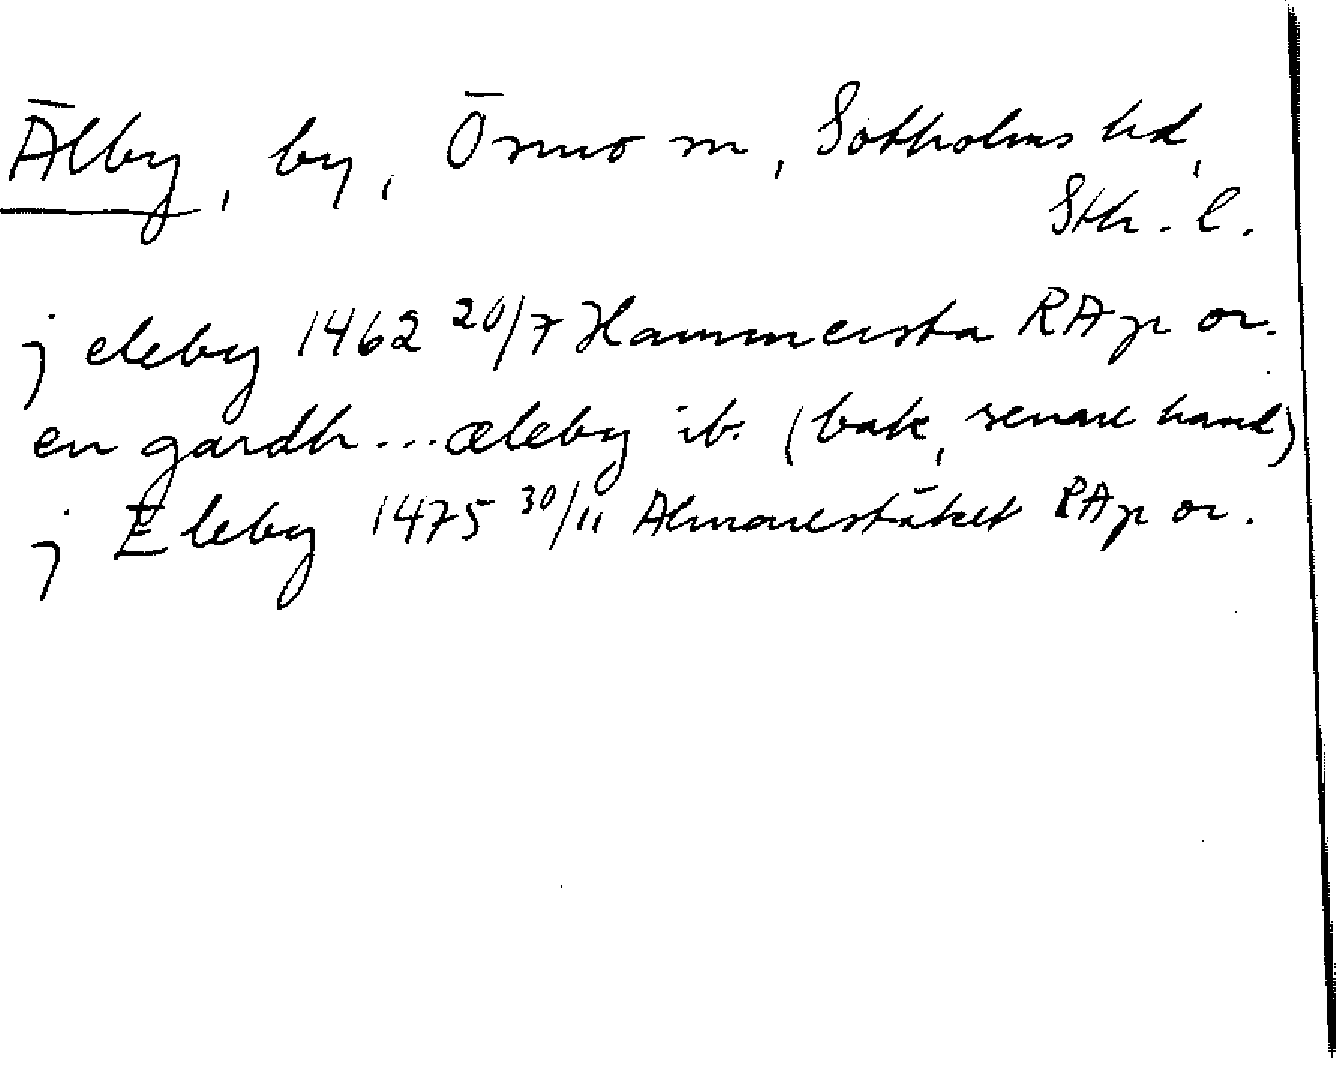 Älby, by, Ornö sn, Sotholms hd,
Sth. l.
j eleby 1462 20/7 Hammersta RAp or.
en gardh... æleby ib. (bak, senare hand)
j Eleby 1475 30/11 Almarestäket RAp or.